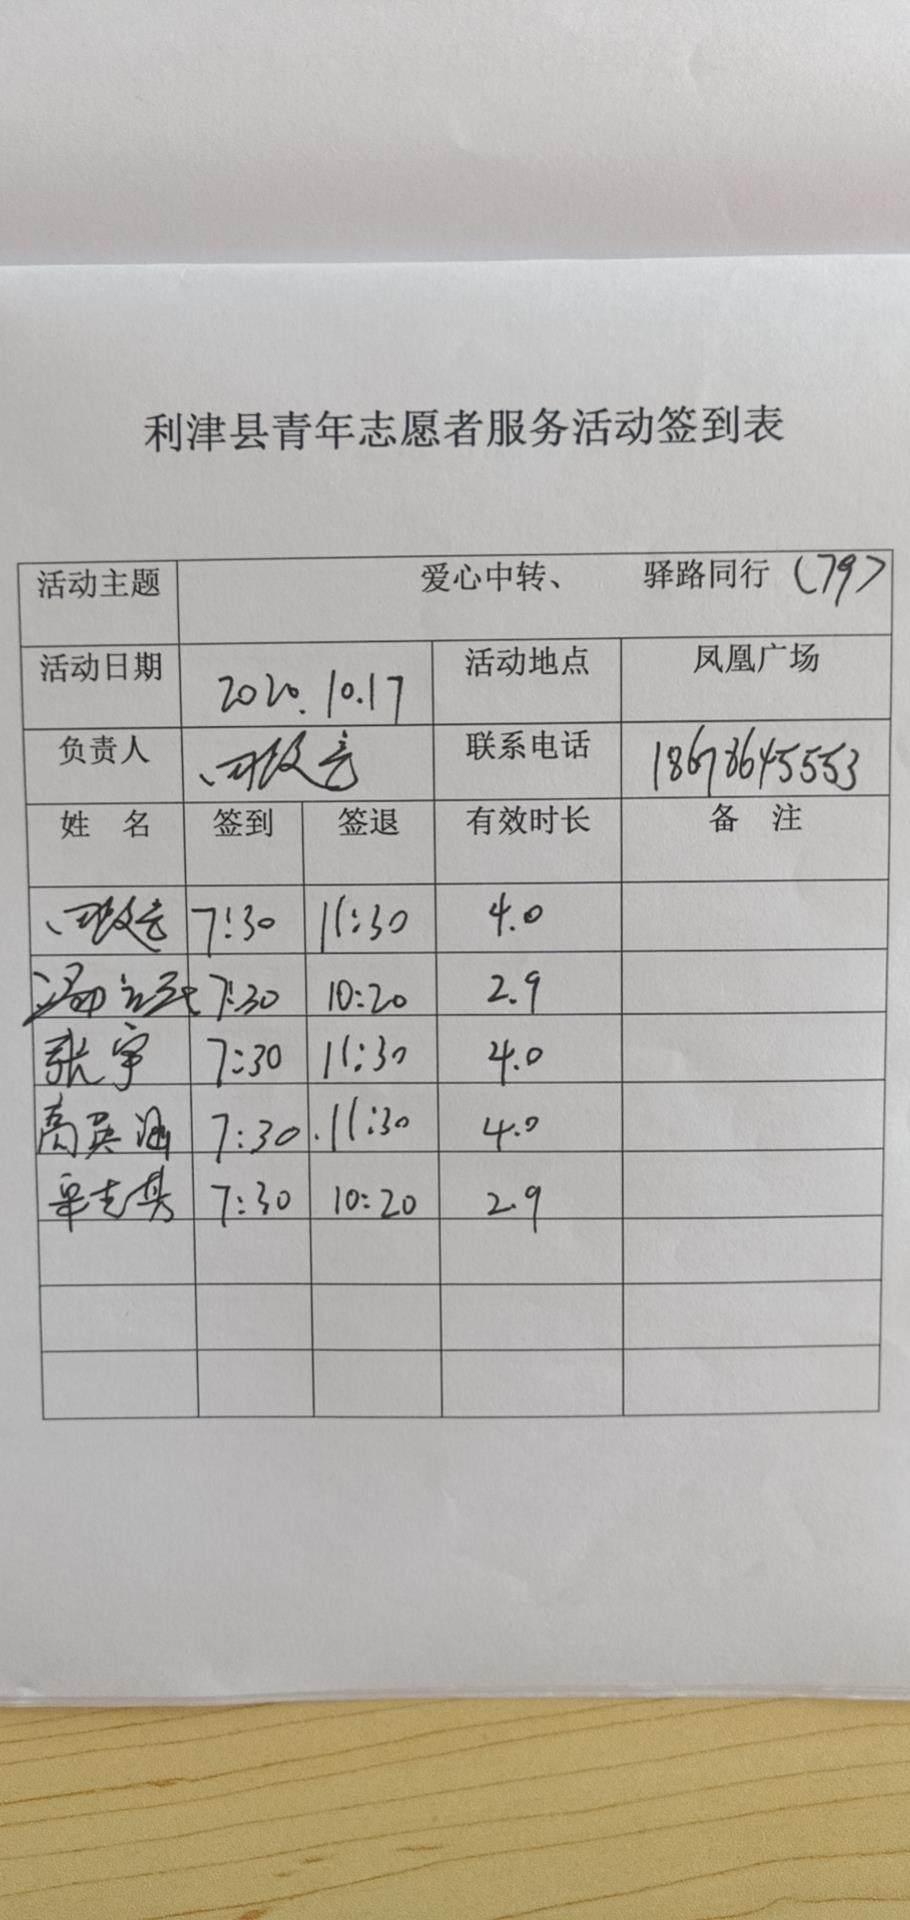 利津县青年志愿者服务活动签到表
活动主题 爱心中转、 驿路同行（79）
活动日期 2020.10.17 活动地点 凤凰广场
负责人 联系电话 18678645553
姓 名 签到 签退 有效时长 备 注
7:30 11:30 4.0
7:30 10:20 2.9
张宇 7:30 11:30 4.0
高英涵 7:30 11:30 4.0
7:30 10:20 2.9